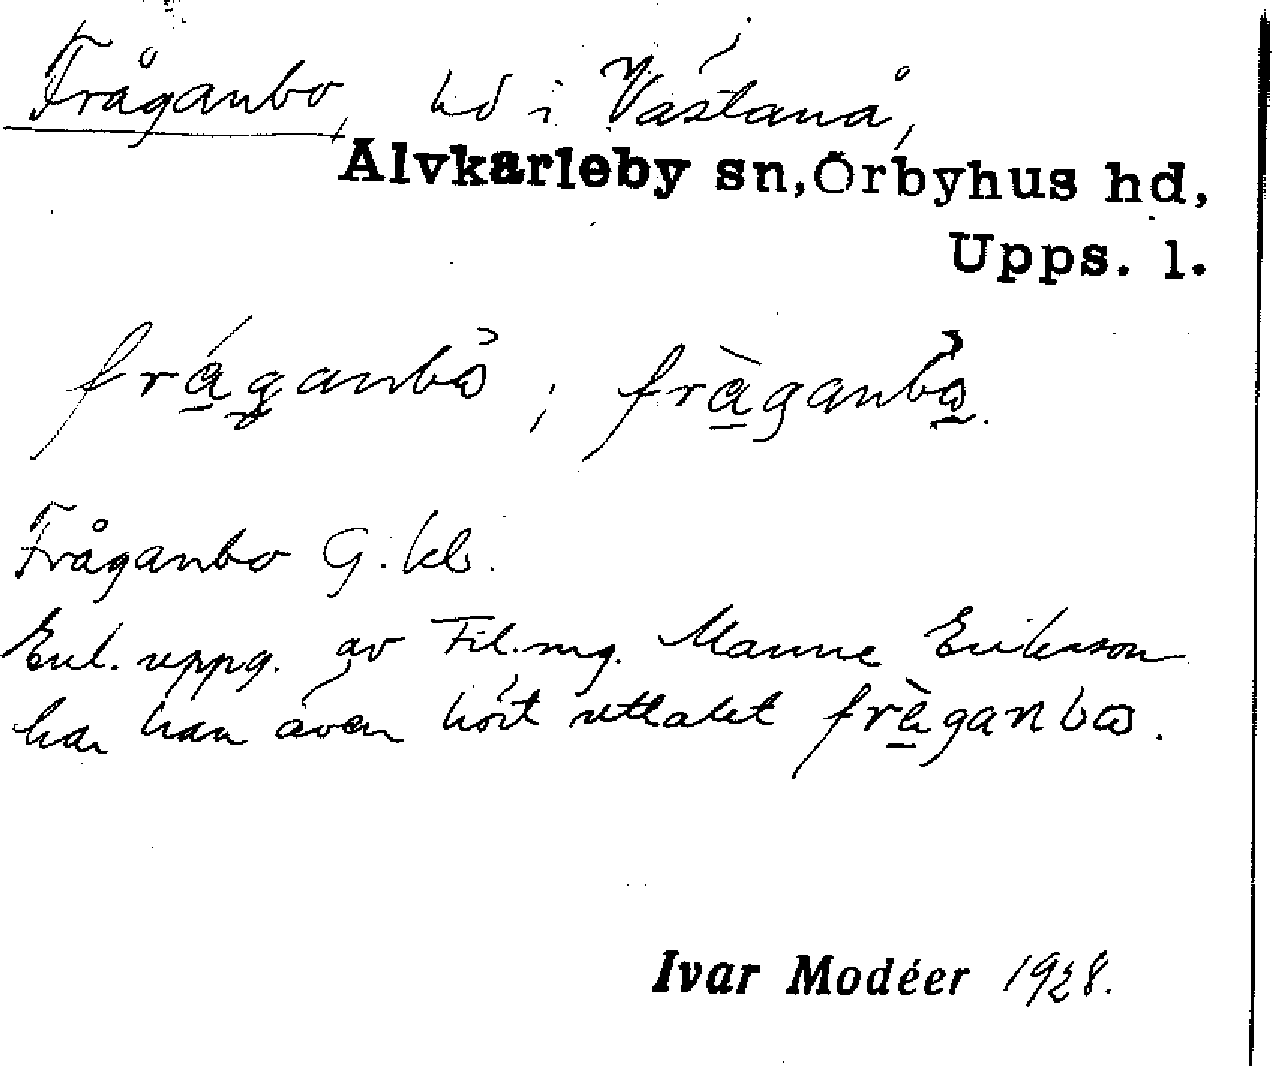 Fråganbo, hd i Västanå,
Älvkarleby sn, Örbyhus hd,
Upps. l.
fråganbo ; fràganbo.
Fråganbo G. kb.
Enl. uppg. av Fil. mg. Manne Eriksson
har han även hört uttalet fràganbo.
Ivar Modéer 1928.